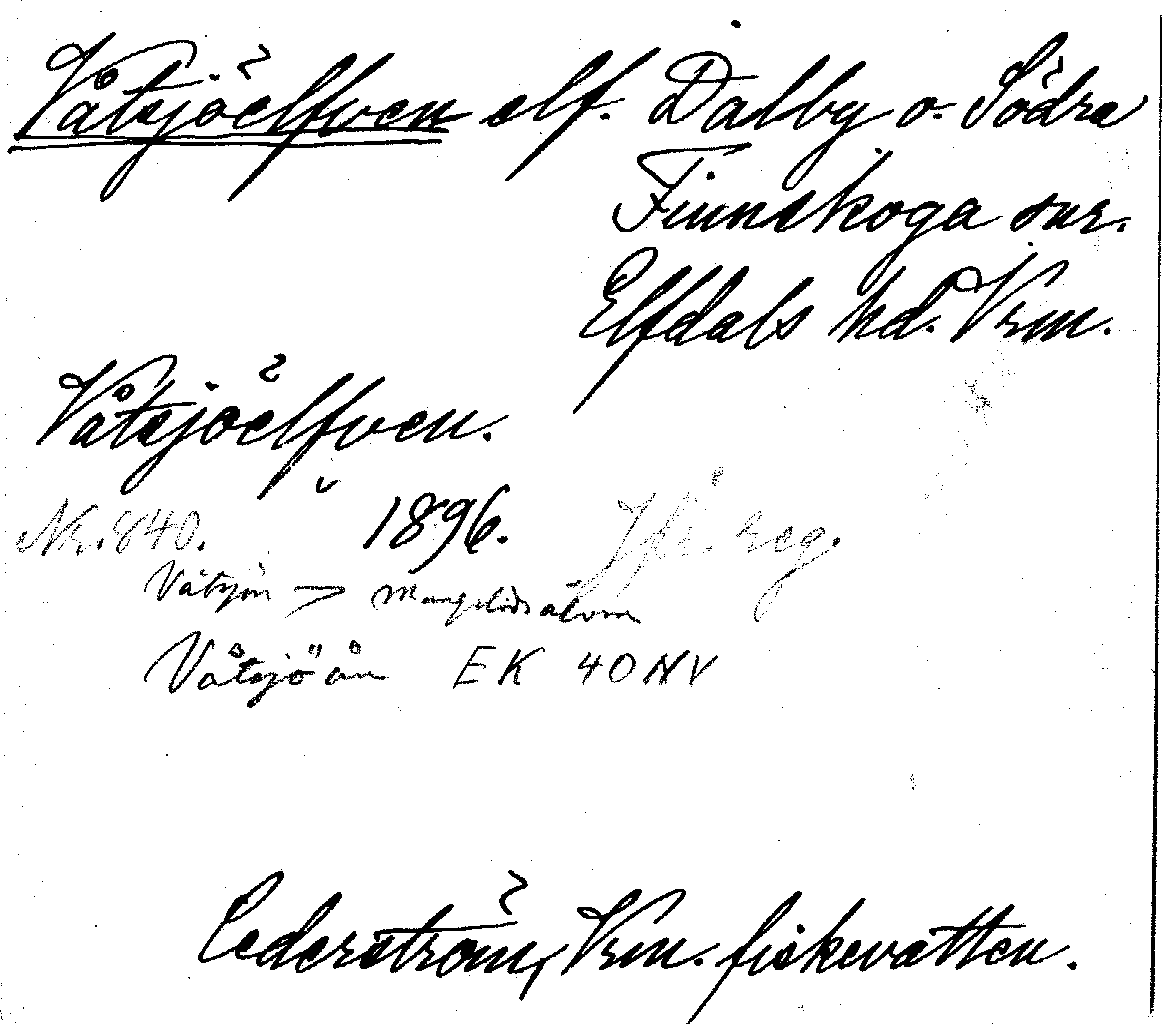 Våtsjöelfven elf. Dalby o. Södra
Finnskoga snr.
Elfdals hd. Vrm.
Våtsjöelfven.
Nr. 840. 1896. Jfr. reg.
Våtsjön →
Våtsjöån EK 40 NV
Cederström, Vrm. fiskevatten.